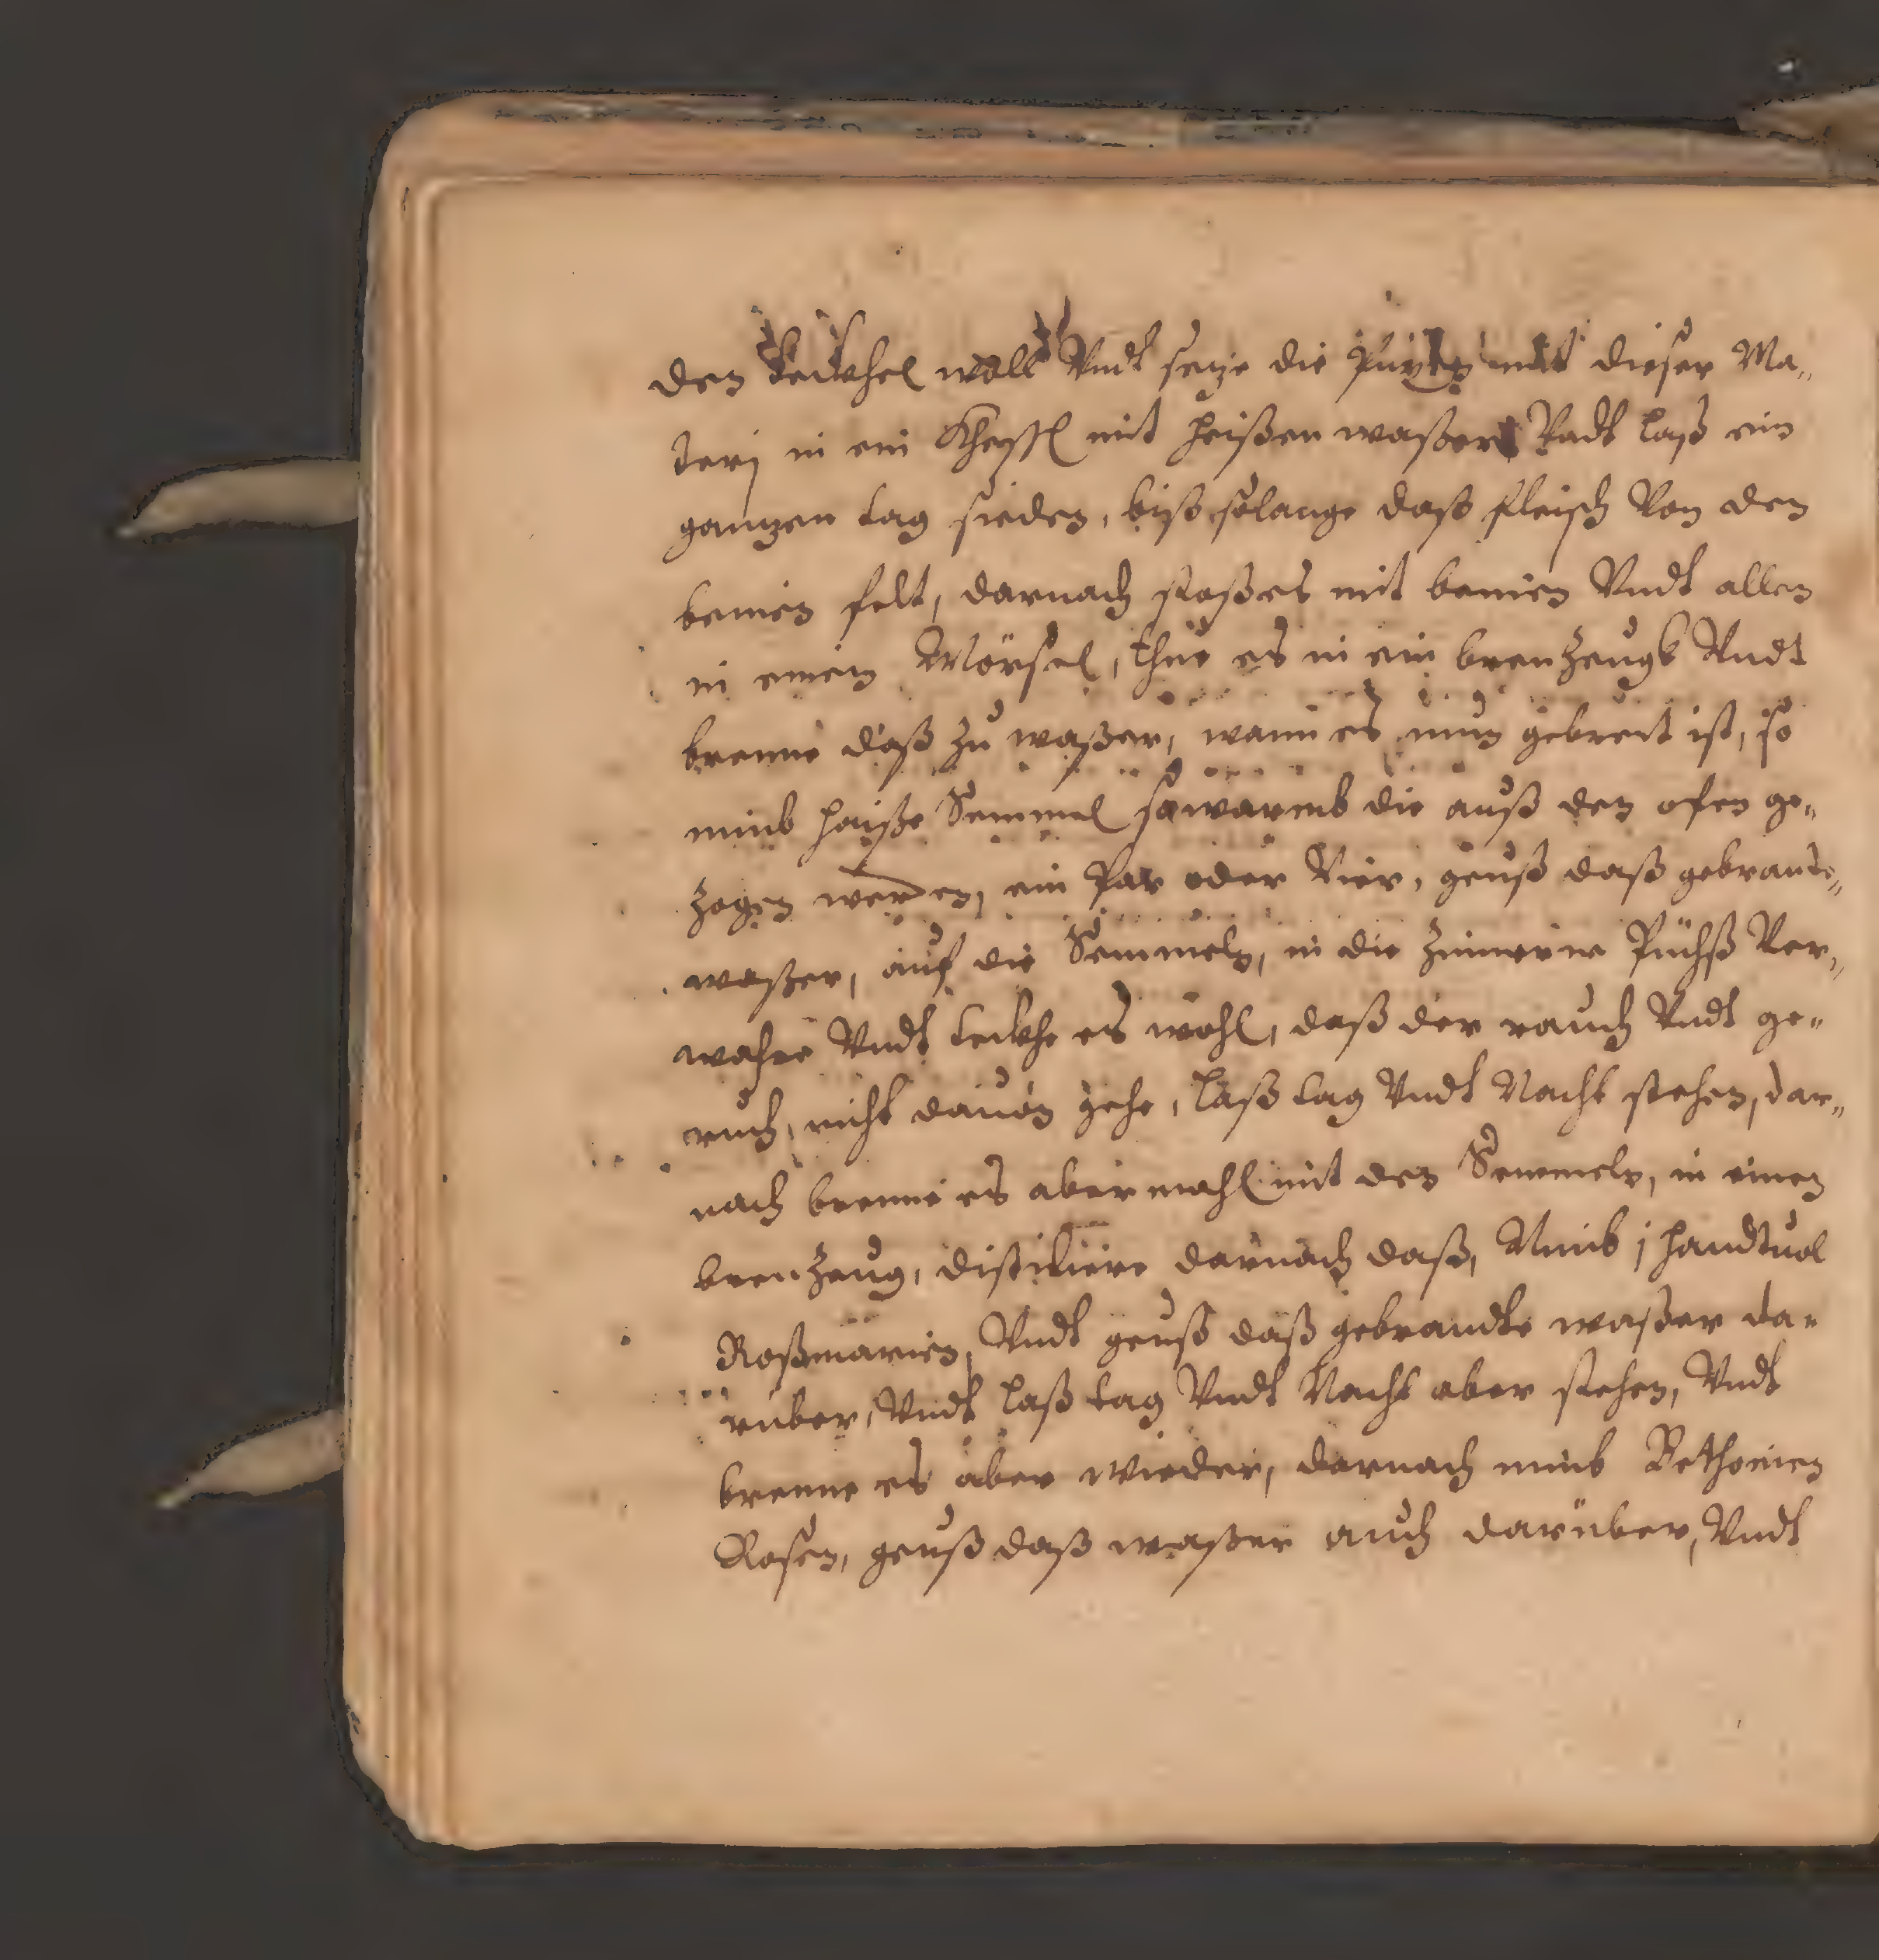 den deckhel woll Vndt seze die mit dieser Ma„
terj in ein Kheßl mit heißen waßer Vndt laß ein
ganzen tag sieden, biß solange daß fleisch Von den
beinen felt, darnach stoß es mit beinen Vndt allen
in einen Mörsel, thue es in ein brenzeugk Vndt
brenne daß zu waßer, wann es nun gebrent ist, so
nimb haiße Semmel so warmb die auß den ofen ge„
zogen werden, ein Par oder Vier, geuß daß gebrante„
waßer, auf die Semmeln, in die zinnerne Püchß Ver„
wahre Vndt deckhe es wohl, daß der rauch Vndt ge„
ruch, nicht dauon gehe, laß tag Vndt Nacht stehen, dar„
nach brenne es abermahl mit den Semmeln, in einen
brenzeug, distiliere darnach daß, Nimb j handtuol
Roßmarien, Vndt geuß daß gebrandte waßer da„
rüber, Vndt laß tag Vndt Nacht aber stehen, Vndt
brenne es aber wieder, darnach nimb Bethonien
Rosen, geuß daß waßer auch darüber, Vndt